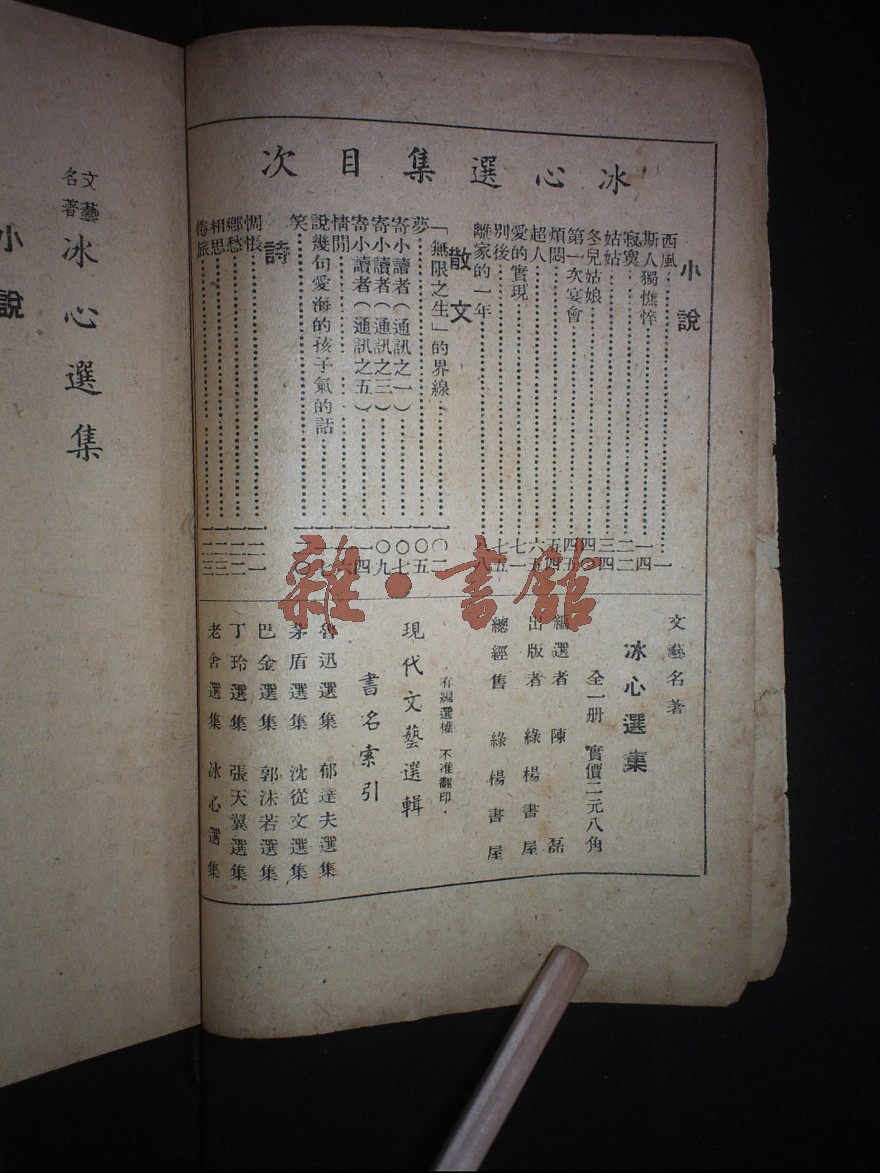 冰心選集目次
小說
西風……一
斯人獨憔悴……一四
寂寞……二二
姑姑……三四
冬兒姑娘……四〇
第一次宴會……四五
煩悶……五四
超人……六五
愛的實現……七一
別後……七五
離家的一年……八八
散文
「無限之生」的界線……一〇二
夢……一〇五
寄小讀者（通訊之一）……一〇七
寄小讀者（通訊之三）……一〇九
寄小讀者（通訊之五）……一一四
閒情……一一六
說幾句愛海的孩子氣的話……一一七
笑……一二〇
詩
惆悵……一二一
鄉愁……一二二
相思……一二三
倦旅……一二三
文藝名著
冰心選集
全一册 實價二元八角
編選者 陳磊
出版者 綠楊書屋
總經售 綠楊書屋
有編選權 不准翻印·
現代文藝選輯
書名索引
魯迅選集 郁達夫選集
茅盾選集 沈從文選集
巴金選集 郭沫若選集
丁玲選集 張天翼選集
老舍選集 冰心選集
文藝名著
冰心選集
小說
雜·書館